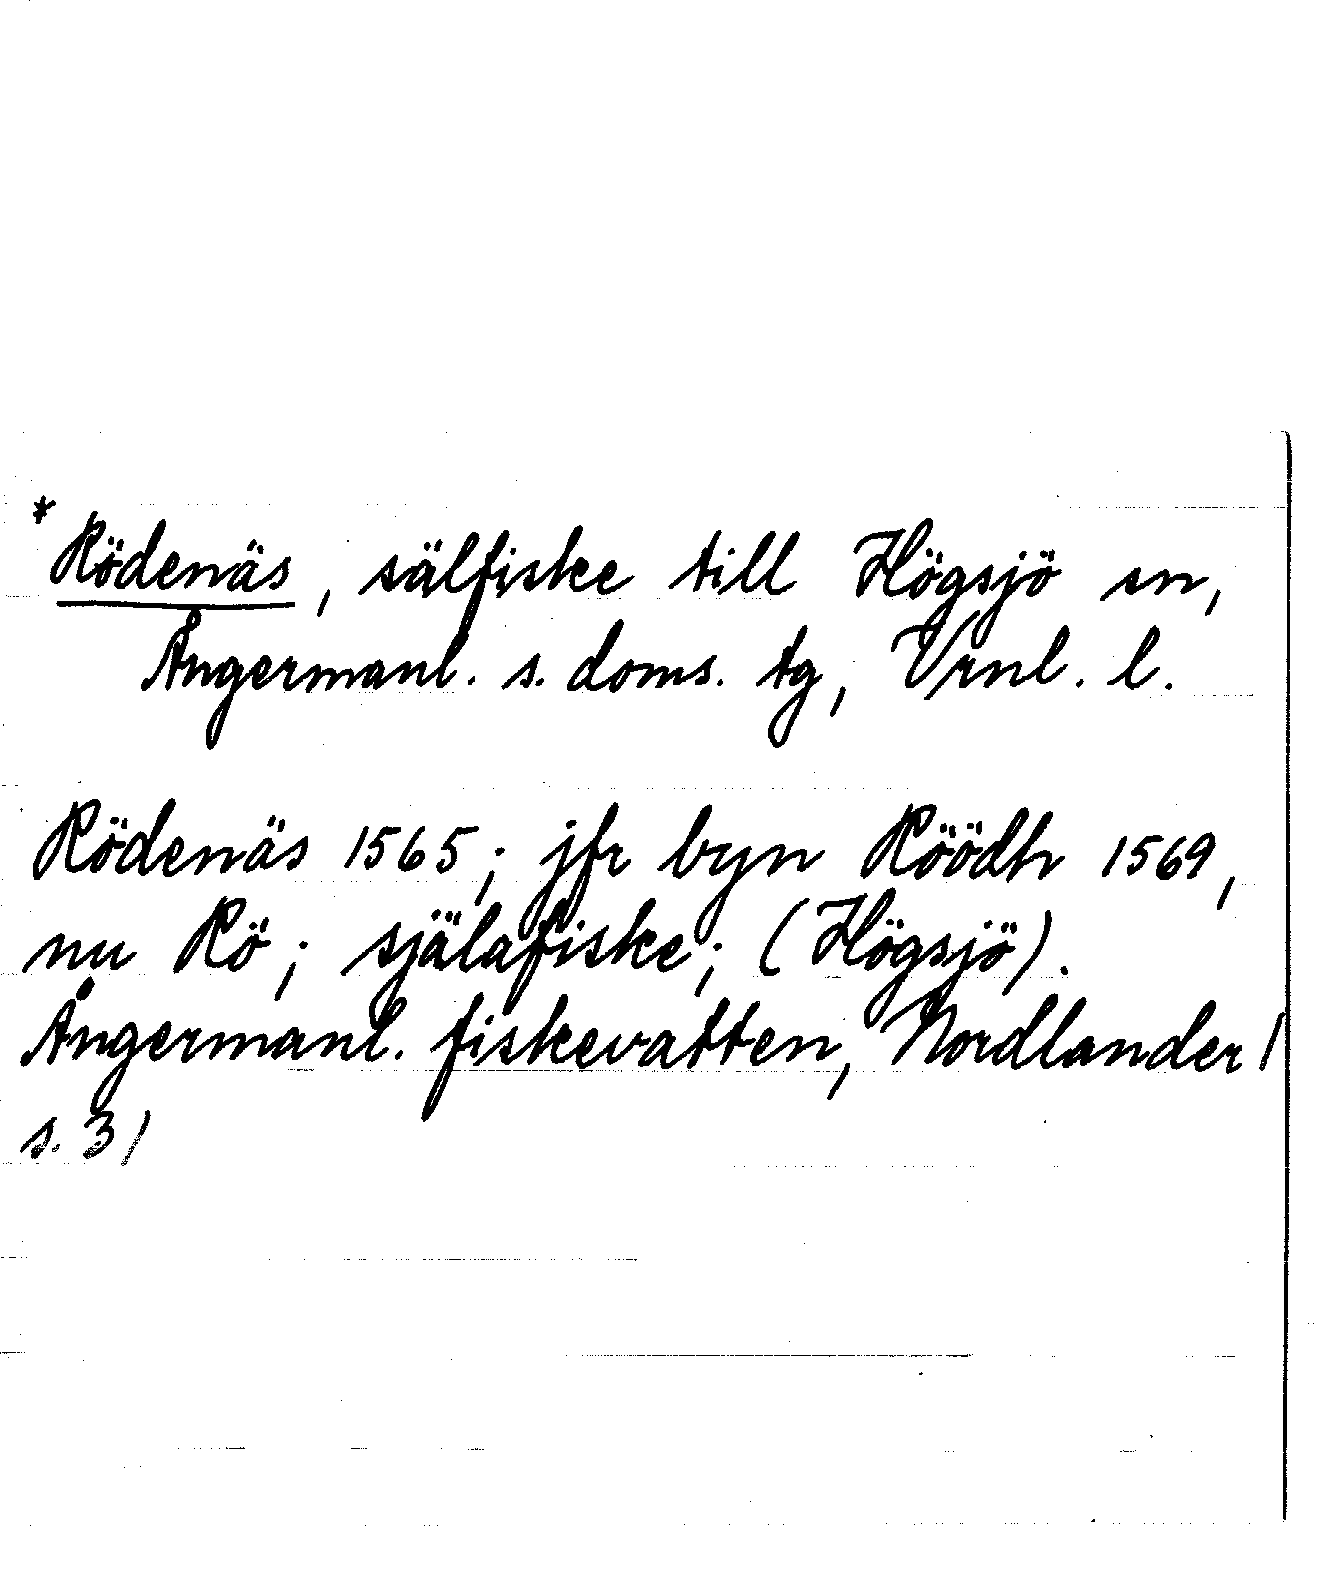 * Rödenäs, sälfiske till Högsjö sn,
Ångermanl. s. doms. tg, Vrnl. l.
Rödenäs 1565; jfr byn Röödh 1569,
nu Rö; själafiske; (Högsjö).
Ångermanl. fiskevatten, Nordlander /
s. 3/